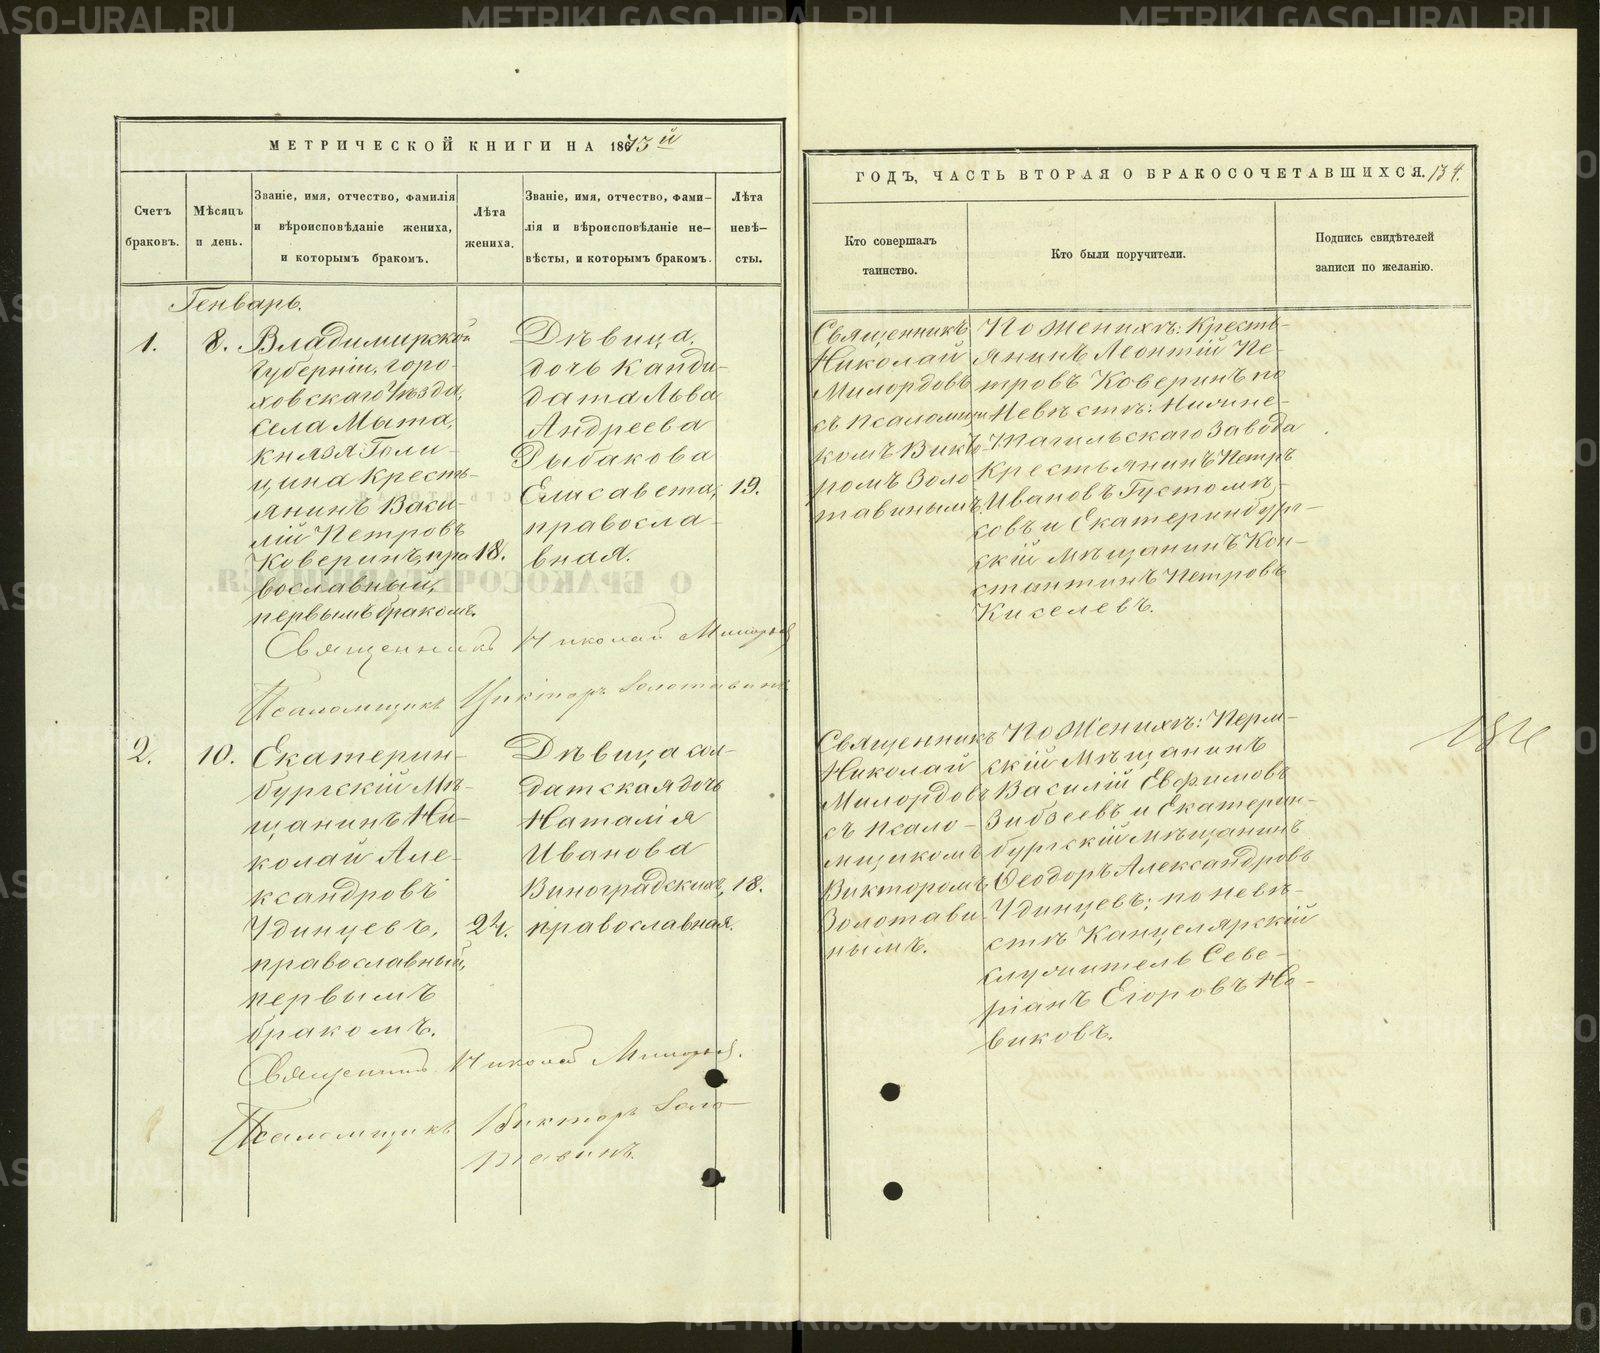 МЕТРИЧЕСКОЙ КНИГИ НА 1873й
Счетъ браковъ.
Мѣсяцъ и день.
Званіе, имя, отчество, фамилія и вѣроисповѣданіе жениха, и которымъ бракомъ.
Лѣта жениха.
Званіе, имя, отчество, фами-
лія и вѣроисповѣданіе не-
вѣсты, и которымъ бракомъ.
Лѣта невѣ-
сты.
Генварь.
1.
8.
Владимирской
губерніи, горо-
ховскаго Уѣзда,
села Мыта,
князя Голи-
цина кресть-
янинъ Васи-
лій Петровъ
Коверинъ, пра
вославный,
первымъ бракомъ.
18.
Дѣвица,
дочь канди-
дата Льва
Андреева
Рыбакова
Елисавета,
правосла-
вная.
19.
Священникъ Николай Милордовъ
Псаломщикъ Викторъ Золотавинъ
2.
10.
Екатерин-
бургскій Мѣ-
щанинъ Ни-
колай Але-
ксандровъ
Удинцевъ,
православный,
первымъ
бракомъ.
24.
Дѣвица сол-
датская дочь
Наталія
Иванова
Виноградскихъ,
православная.
18.
Священникъ Николай Милордовъ.
Псаломщикъ Викторъ Золо-
тавинъ.
ГОДЪ, ЧАСТЬ ВТОРАЯ О БРАКОСОЧЕТАВШИХСЯ. 134.
Кто совершалъ
таинство.
Кто были поручители.
Подпись свидѣтелей
записи по желанію.
Священникъ
Николай
Милордовъ
съ псаломщи
комъ Викъ
ромъ Золо
тавинымъ.
По женихѣ: кресть-
янинъ Леонтій Пе-
тровъ Коверинъ по
Невѣстѣ: Нижне-
Тагильскаго Завода
крестьянинъ Петръ
Ивановъ Густомѣ-
совъ и Екатеринбург-
скій мѣщанинъ Кон-
стантинъ Петровъ
Киселевъ.
Священникъ
Николай
Милордовъ
съ псало-
мщикомъ
Викторомъ
Золотави
нымъ.
По Женихѣ: Перм-
скій Мѣщанинъ
Василій Евфимовъ
Зибзеевъ и Екатерин-
бургскій мѣщанинъ
Ѳеодоръ Александровъ
Удинцевъ; по невѣ-
стѣ Канцелярскій
служитель Севе-
ріанъ Егоровъ Но-
виковъ.
METRIKI.GASO-URAL.RU